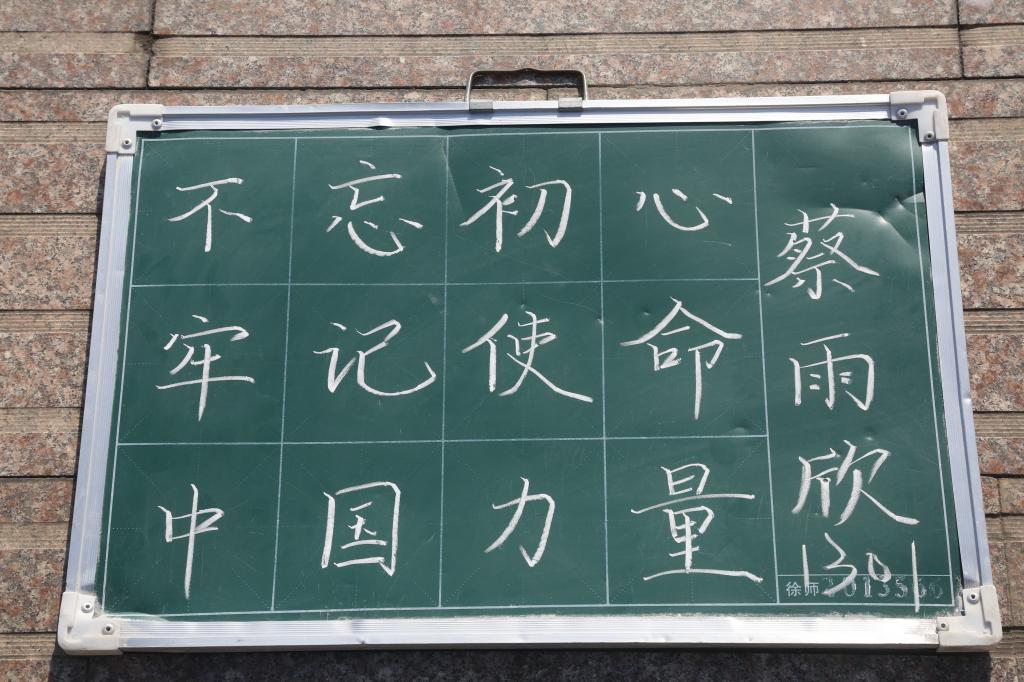 不忘初心
牢记使命
中国力量
蔡雨欣
1301
徐师